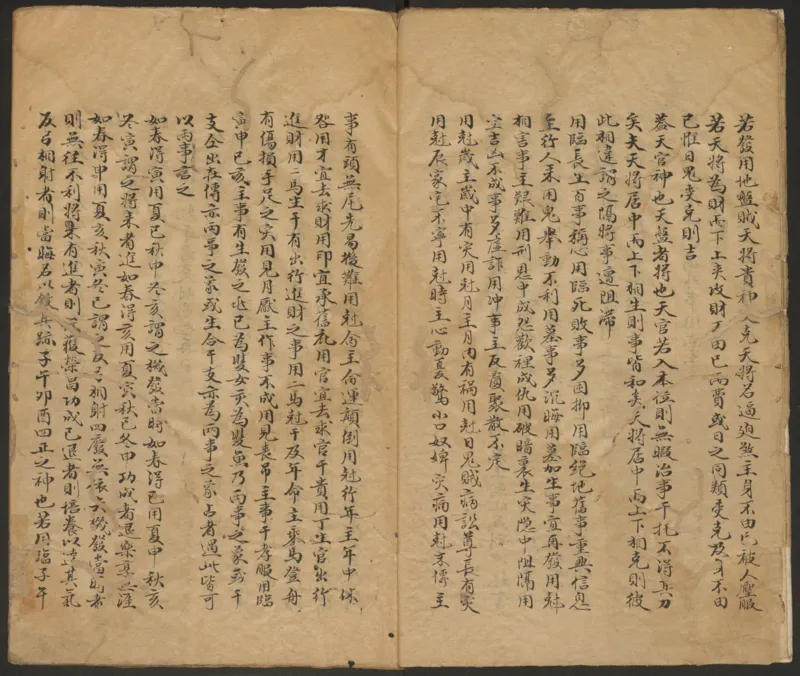 若發用地盤賊天將貴神入克天將名逼迫煞主身不由己被人壓服
若天將為財而下上夾攻財丁由己而費或日之同類受克及身不由
己惟日鬼受克則吉
蓋天官神也天盤者將也天官若入本位則無暇治事干托不得其力
矣夫天將居中而上下相生則事皆和矣天將居中而上下相克則彼
此相違謂之隔將事遭阻滯
用臨長生百事稱心用臨死敗事多困抑用臨絕地舊事重興信息
至行人來用鬼舉動不利用墓事多沉晦用墓加生事宜再發用尅
相言事主疑難用刑恩中成怨歡裡成仇用破暗裏生災隱中阻隔用
空吉凶不成事多虛詐用冲事主反覆聚散不定
用尅歲主歲中有災用尅月主月內有禍用尅日鬼賊病訟尊長有災
用尅辰家宅不寧用尅時主心動憂驚小口奴婢災病用尅末傳主
事有頭無尾先易後難用尅命主命運顛倒用尅行年主年中休
咎用才宜去求財用印宜承舊用官宜去求官干貴用丁主官出行
進財用二馬生干有出行進財之事用二馬尅干及年命主乘馬登舟
有傷損手足之災用見月厭主作事不成用見喪吊主事干孝服用臨
寅申巳亥主事有生發之兆巳為雙女亥為雙魚乃兩事之象或干
支全出在傳亦兩事之象或生合干支亦為兩事之象占者遇此皆可
以兩事言之
如春得寅用夏巳秋申冬亥謂之機發當時如春得巳用夏申秋亥
冬寅謂之將來者進如春得亥用夏寅秋巳冬申功成者退
如春得申用夏亥秋寅冬巳謂之反弓相射四發機發當時者
則無往不利將來有進者則定獲榮昌功成已退者則培養以遂其氣
反弓相射者則當晦名以斂其跡子午卯酉四正之神也若用臨子午